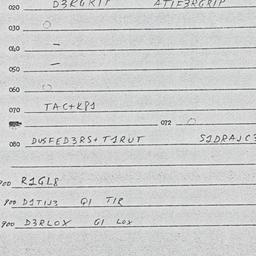 020 D3RGRIP ATIF3RGRIP
030 O
040 –
050 –
060 O
070 TAC+KP1
072 O
080 DUSFED3RS+T1RUT S1DRAJC3
900 R1GL8
900 D1TIJ3 QI TIR
900 D3RLOX GI LOX